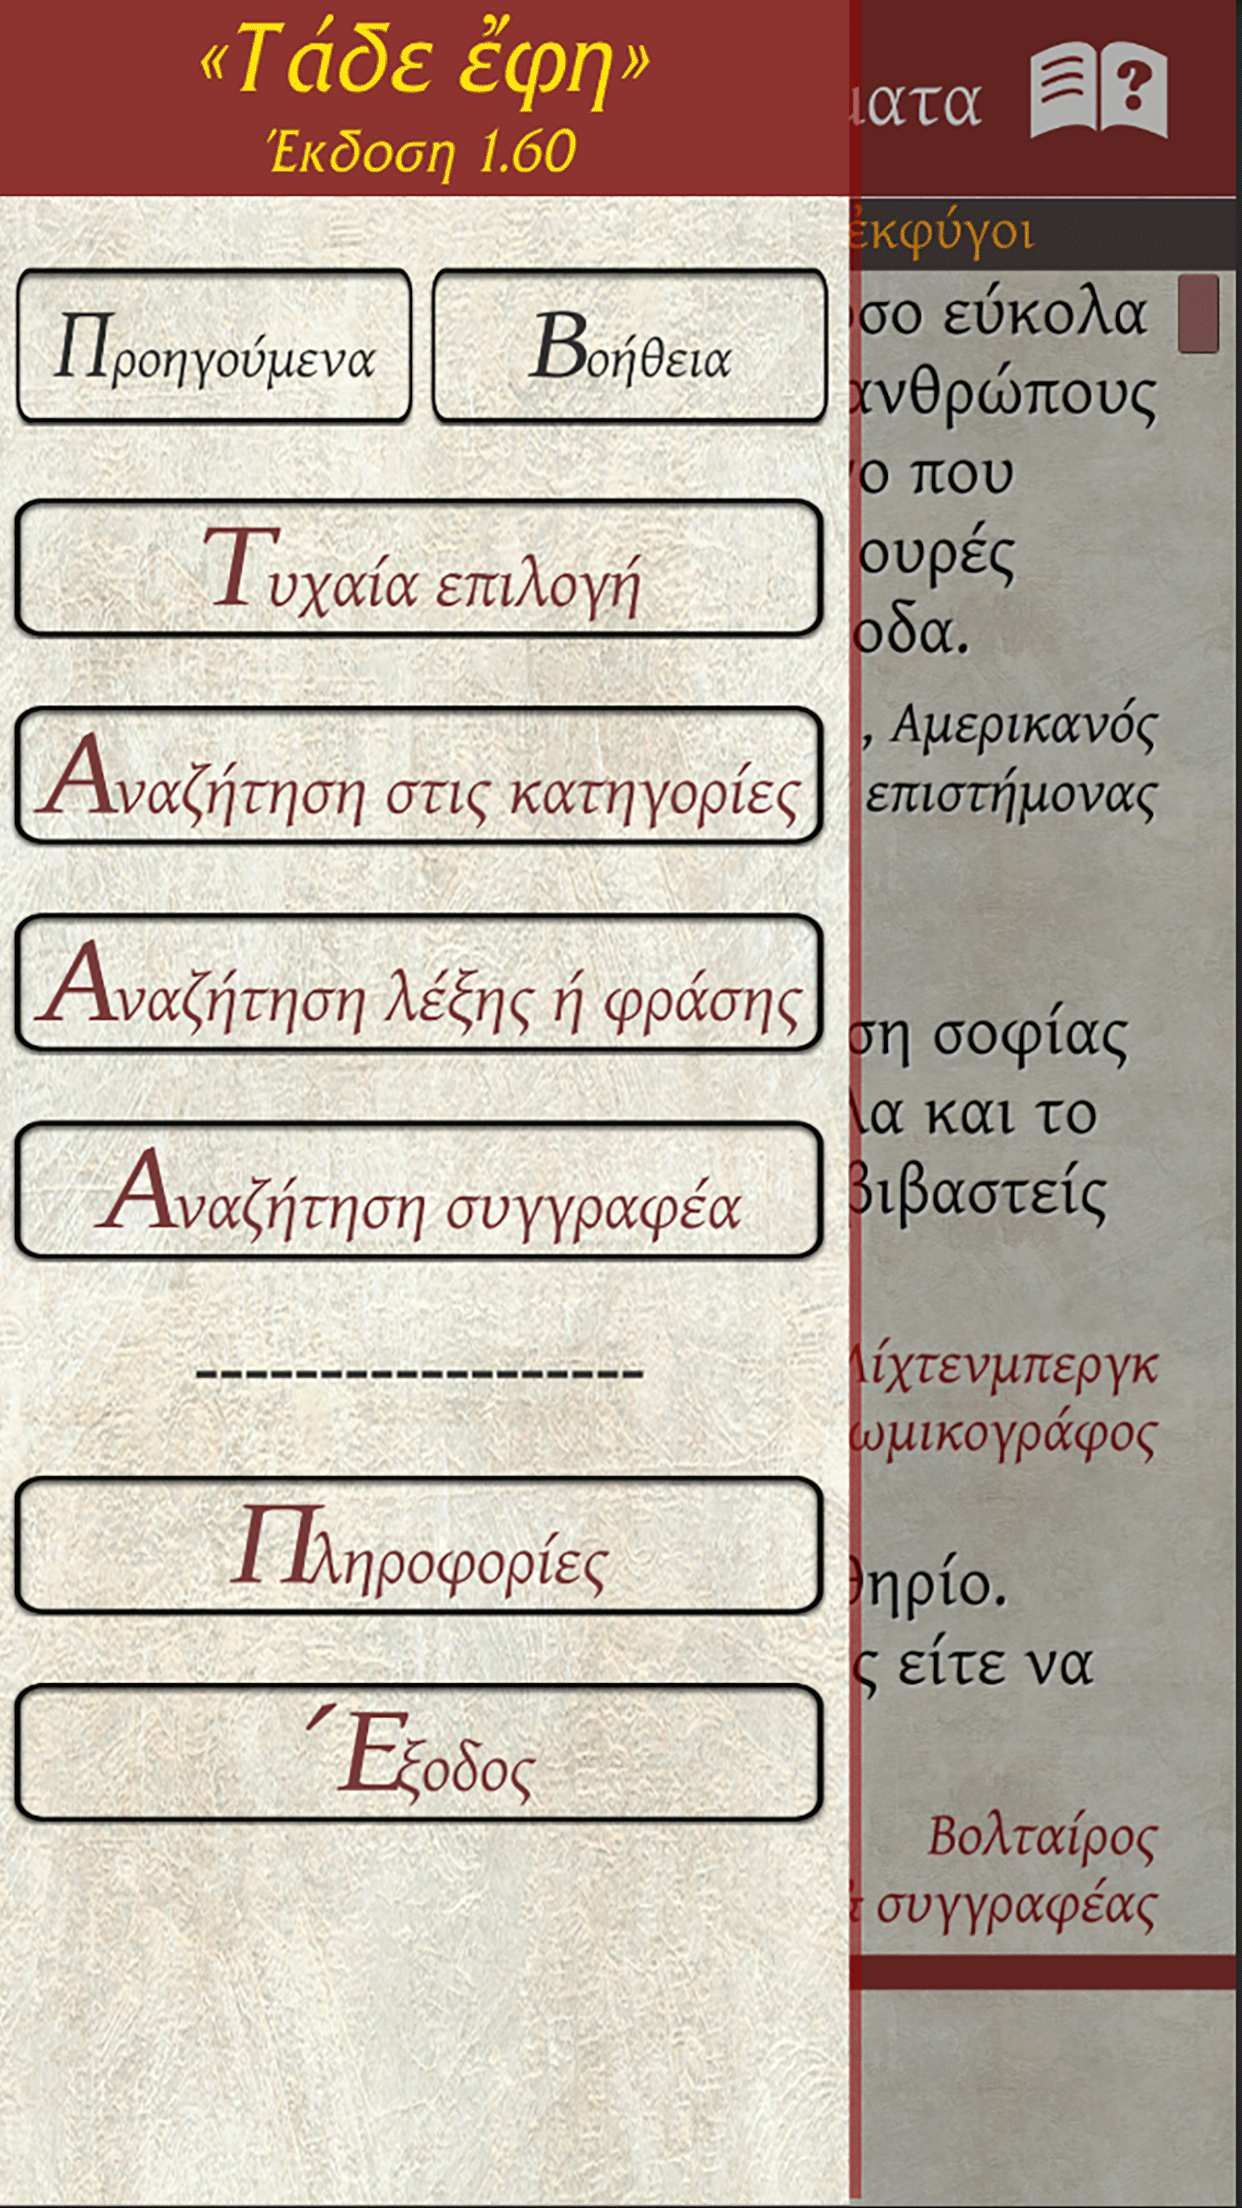 «Τάδε ἔφη»
Έκδοση 1.60
Προηγούμενα
Βοήθεια
Τυχαία επιλογή
Αναζήτηση στις κατηγορίες
Αναζήτηση λέξης ή φράσης
Αναζήτηση συγγραφέα
------------------
Πληροφορίες
Έξοδος
ἐκφύγοι
εύκολα
ανθρώπους
που
, Αμερικανός
επιστήμονας
σοφίας
και το
Λίχτενμπεργκ
είτε να
Βολταίρος
συγγραφέας